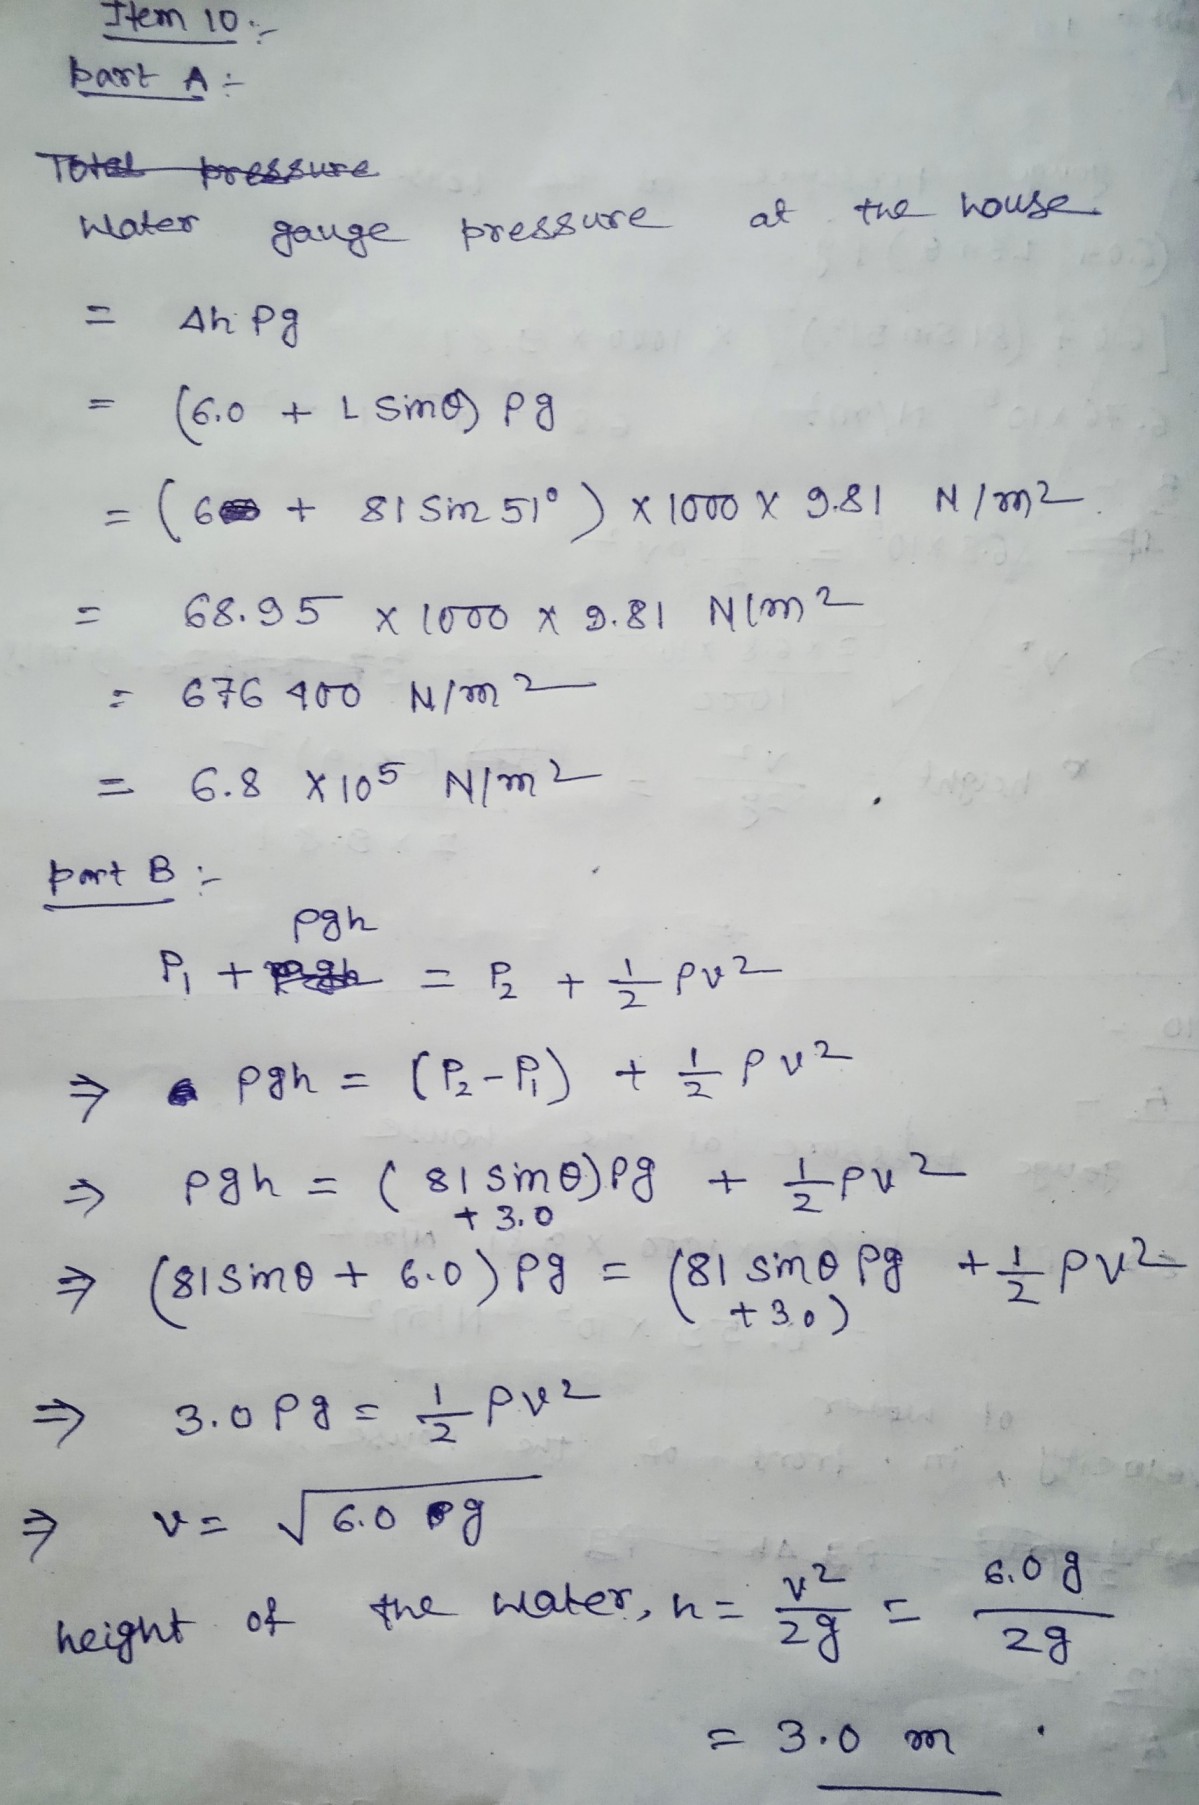 Item 10 :-
Part A :-
Total pressure
Water gauge pressure at the house.
= Δh ρg
= (6.0 + L sinθ) ρg
= (6 + 81 sin 51°) × 1000 × 9.81 N/m²
= 68.95 × 1000 × 9.81 N/m²
= 676400 N/m²
= 6.8 × 10⁵ N/m²
Part B :-
P₁ + ρgh = P₂ + 1/2 ρv²
⇒ ρgh = (P₂ - P₁) + 1/2 ρv²
⇒ ρgh = (81 sinθ + 3.0) ρg + 1/2 ρv²
⇒ (81 sinθ + 6.0) ρg = (81 sinθ + 3.0) ρg + 1/2 ρv²
⇒ 3.0 ρg = 1/2 ρv²
⇒ v = √6.0 g
height of the water, h = v²/2g = 6.0 g/2g
= 3.0 m